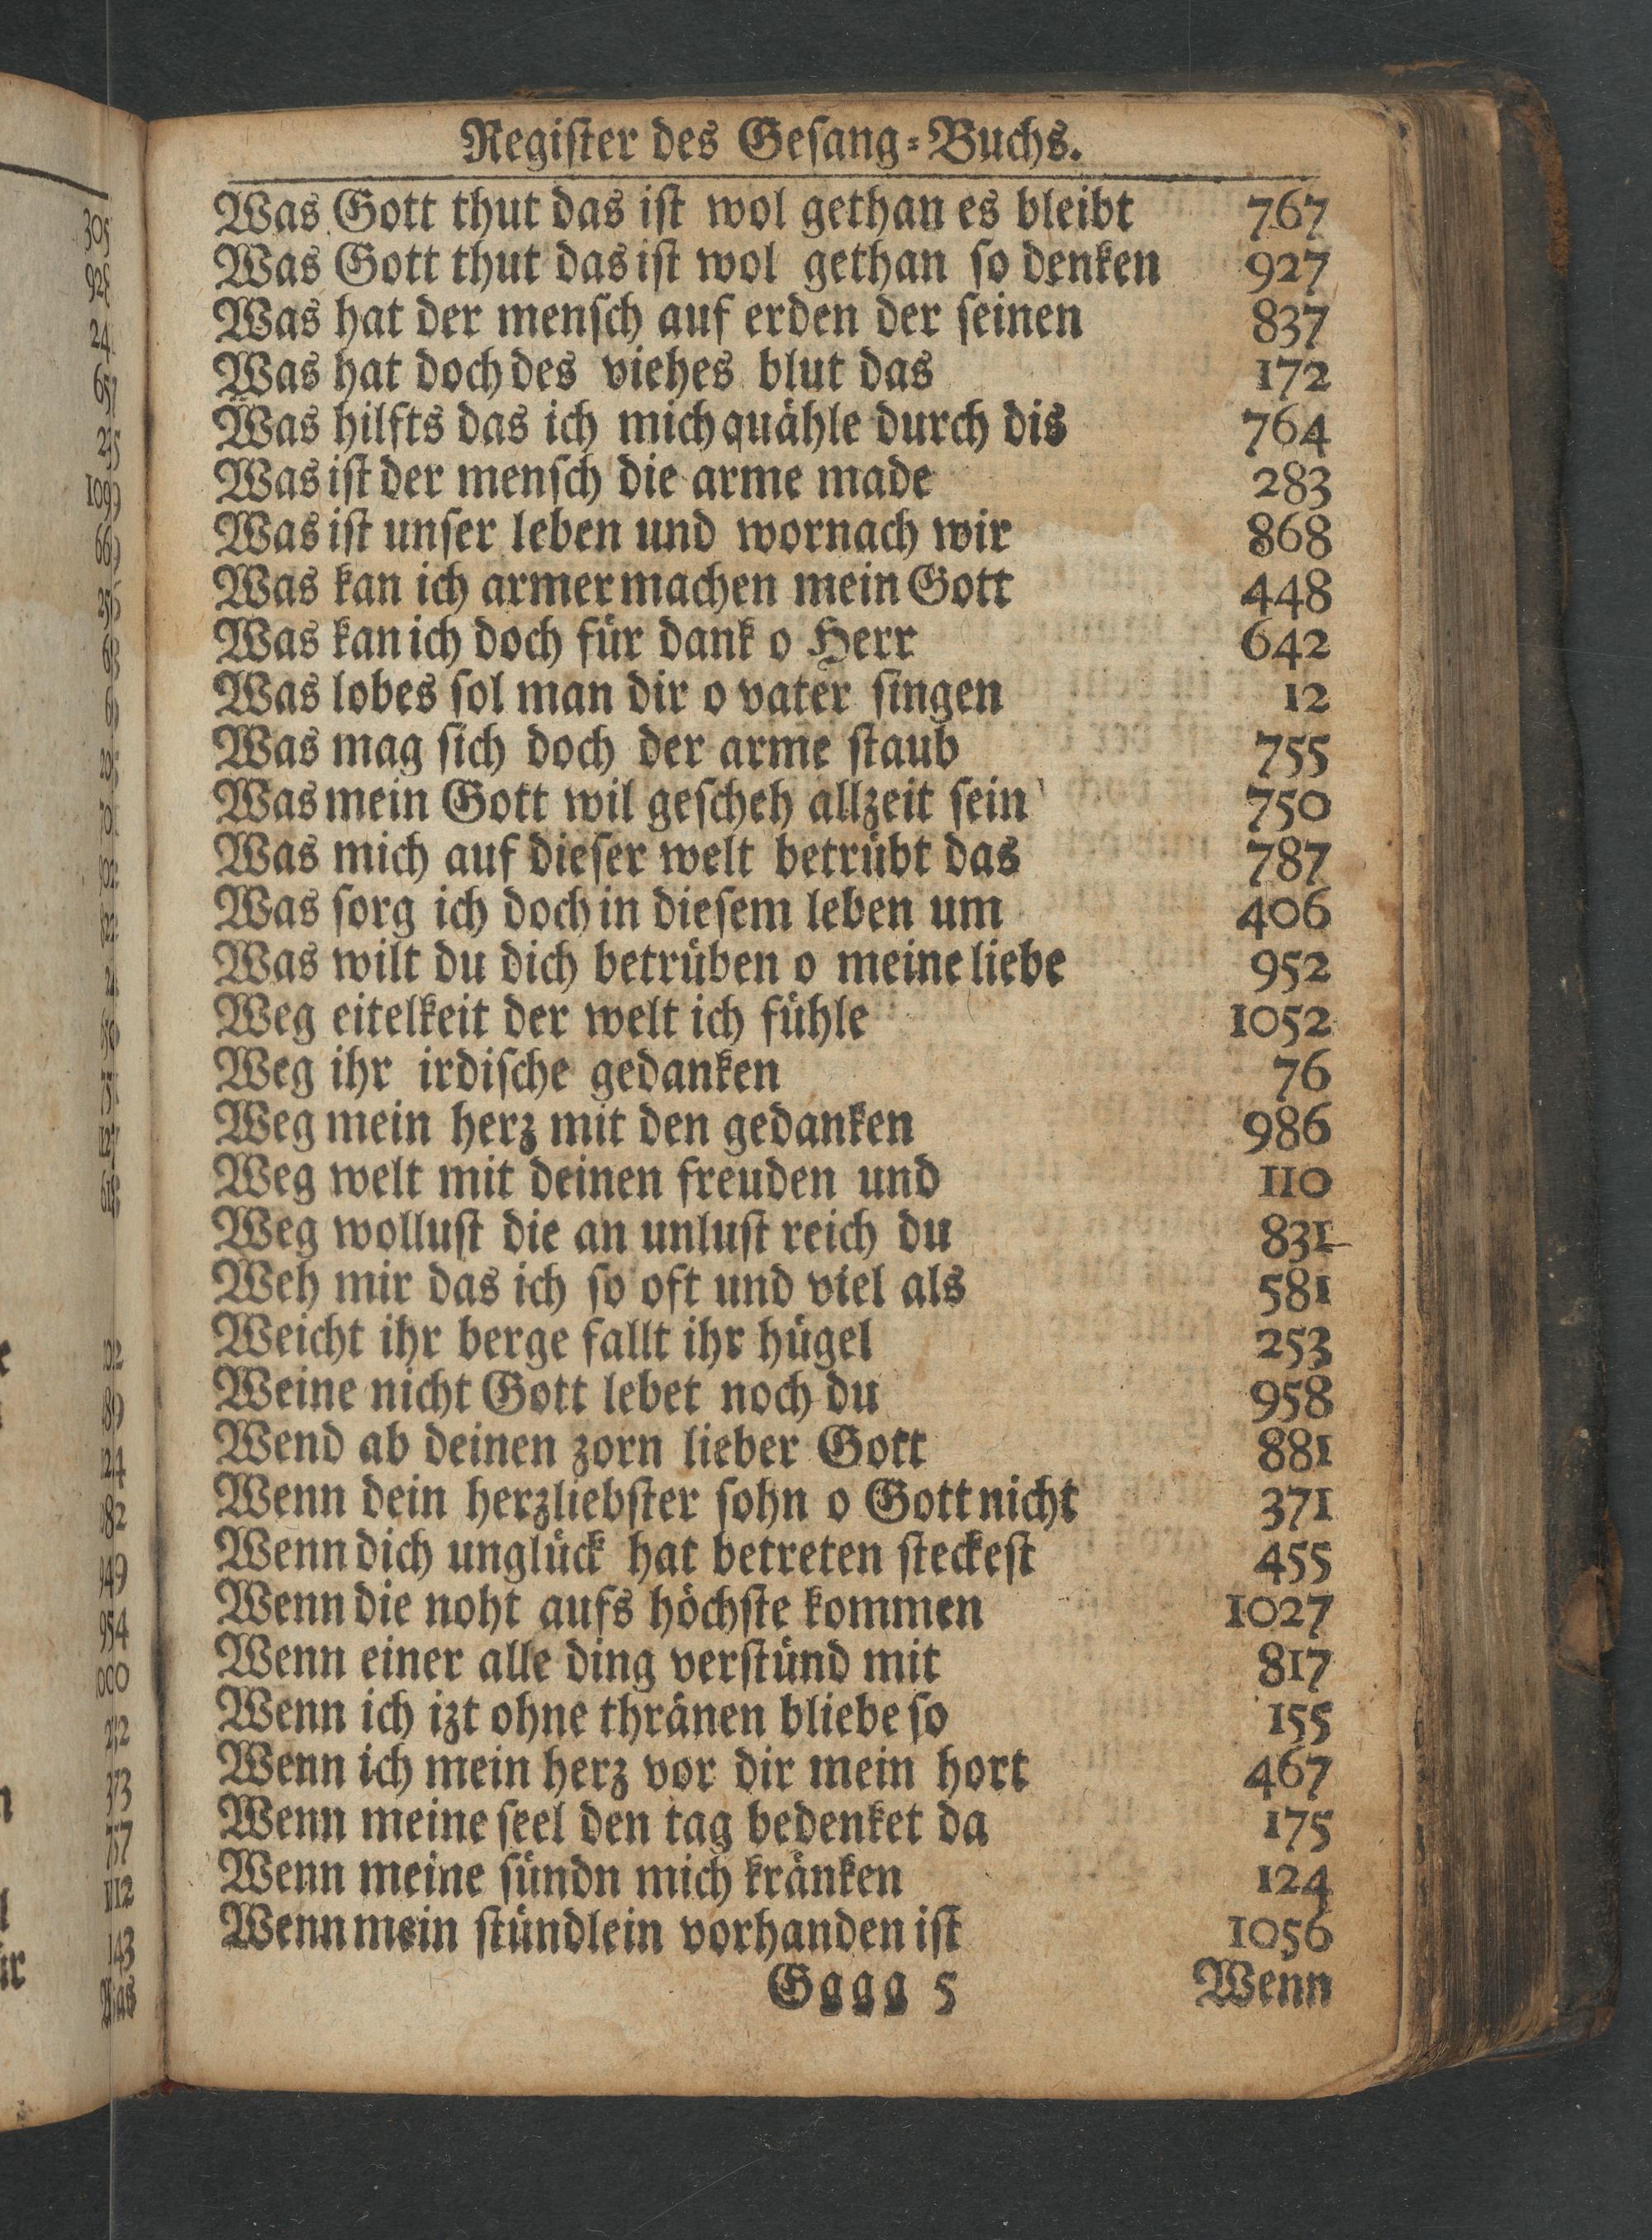 Register des Gesang-Buchs.
Was Gott thut das ist wol gethan es bleibt 767
Was Gott thut das ist wol gethan so denken 927
Was hat der mensch auf erden der seinen 837
Was hat doch des viehes blut das 172
Was hilfts das ich mich quähle durch dis 764
Was ist der mensch die arme made 283
Was ist unser leben und wornach wir 868
Was kan ich armer machen mein Gott 448
Was kan ich doch für dank o Herr 642
Was lobes sol man dir o vater singen 12
Was mag sich doch der arme staub 755
Was mein Gott wil gescheh allzeit sein 750
Was mich auf dieser welt betrübt das 787
Was sorg ich doch in diesem leben um 406
Was wilt du dich betrüben o meine liebe 952
Weg eitelkeit der welt ich fühle 1052
Weg ihr irdische gedanken 76
Weg mein herz mit den gedanken 986
Weg welt mit deinen freuden und 110
Weg wollust die an unlust reich du 831
Weh mir das ich so oft und viel als 581
Weicht ihr berge fallt ihr hügel 253
Weine nicht Gott lebet noch du 958
Wend ab deinen zorn lieber Gott 881
Wenn dein herzliebster sohn o Gott nicht 371
Wenn dich unglück hat betreten steckest 455
Wenn die noht aufs höchste kommen 1027
Wenn einer alle ding verstünd mit 817
Wenn ich izt ohne thränen bliebe so 155
Wenn ich mein herz vor dir mein hort 467
Wenn meine seel den tag bedenket da 175
Wenn meine sündn mich kränken 124
Wenn mein stündlein vorhanden ist 1056
Gggg 5 Wenn